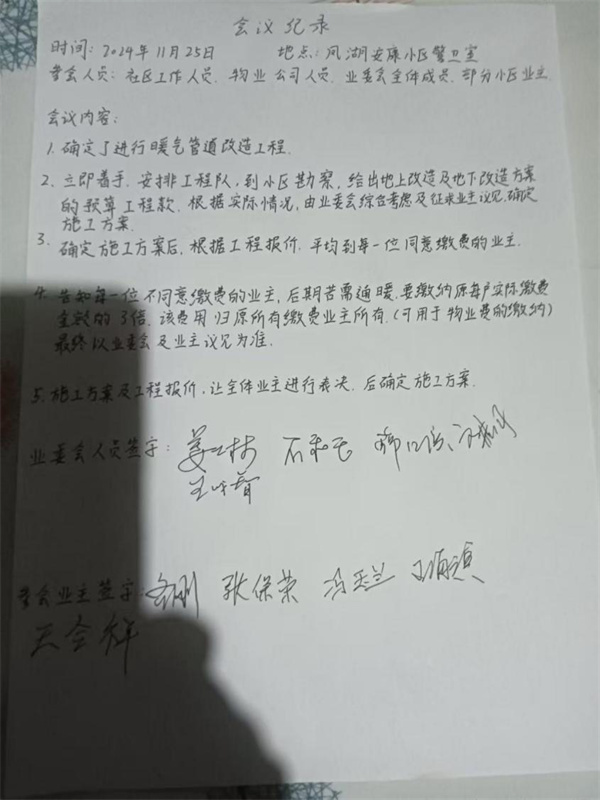 会议纪录
时间: 2024年11月25日 地点: 凤湖安康小区警卫室
参会人员: 社区工作人员. 物业公司人员. 业委会全体成员. 部分小区业主
会议内容:
1. 确定了进行暖气管道改造工程.
2. 立即着手, 安排工程队, 到小区勘察, 给出地上改造及地下改造方案
的预算工程款. 根据实际情况, 由业委会综合考虑及征求业主议见, 确定
施工方案.
3. 确定施工方案后, 根据工程报价. 平均到每一位同意缴费的业主.
4. 告知每一位不同意缴费的业主, 后期若需通暖. 要缴纳原每户实际缴费
金额的3倍. 该费用归原所有缴费业主所有. (可用于物业费的缴纳)
最终以业委会及业主议见为准.
5. 施工方案及工程报价, 让全体业主进行表决. 后确定施工方案.
业委会人员签字:
参会业主签字: 张保荣 冯玉兰
王会祥